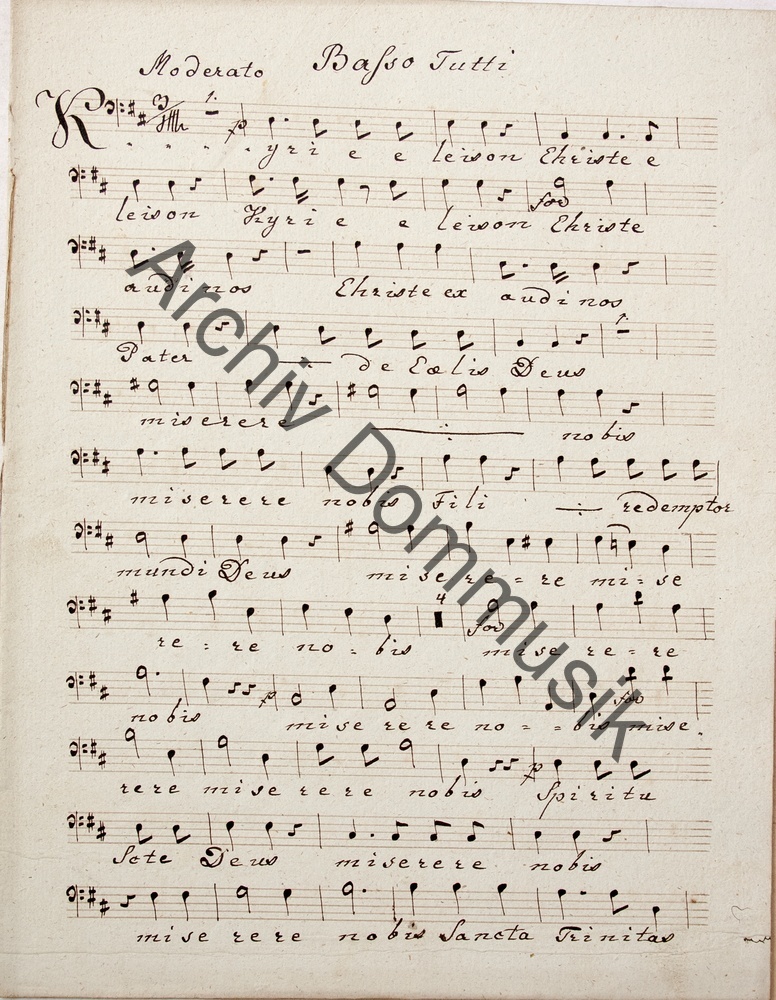 Moderato Basso Tutti
1.
p
Kyri e e leison Christe e
leison Kyri e e leison Christe
for
audi nos Christe ex audi nos
1.
Pater ÷ de Cœlis Deus
miserere ÷ nobis
miserere nobis Fili ÷ redemptor
mundi Deus mise re = re mi = se
4
for
re = re no = bis mise re = re
p for
nobis mise re re no = = bis mise.
p
rere mise rere nobis Spiritu
Scte Deus miserere nobis
mise rere nobis Sancta Trinitas
Archiv Dommusik